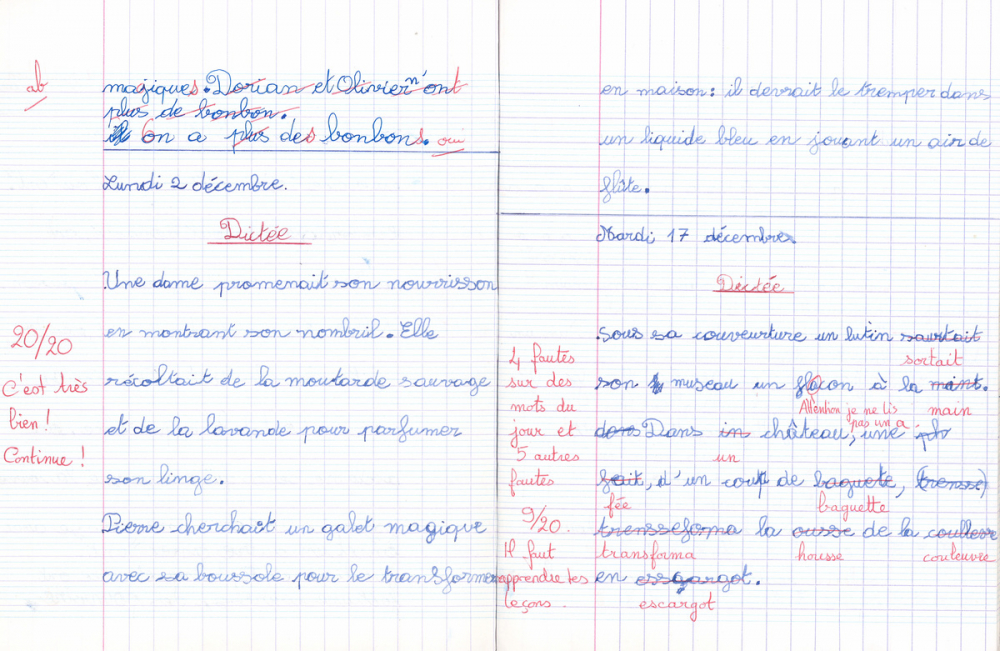 ab
magiques. Dorian et Olivier n'ont
plus de bonbon.
On a plus des bonbons. oui
Lundi 2 décembre.
Dictée
Une dame promenait son nourrisson
en montrant son nombril. Elle
20/20
récoltait de la moutarde sauvage
C'est très
bien !
et de la lavande pour parfumer
Continue !
son linge.
Pierre cherchait un galet magique
avec sa boussole pour le transformer
en maison : il devrait le tremper dans
un liquide bleu en jouant un air de
flûte.
Mardi 17 décembre
Dictée
Sous sa couveurture un lutin saurtait
sortait
4 fautes
sur des
mots du
jour et
5 autres
fautes
9/20.
Il faut
apprendre tes
leçons.
son museau un flacon à la
Attention je ne lis main
pas un a.
dans Dans in château, une
un
fait, d'un coup de baguete,
fée baguette
transseforma la ousse de la
transforma housse couleuvre
en essgargot.
escargot